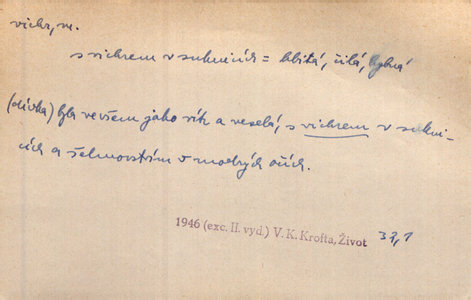 vichr, m.
s vichrem v sukních = hbitá, čilá, hybná
(dívka) byla ve všem jako rtuť a veselá, s vichrem v sukni-
ích a šelmovstvím v modrých očích.
1946 (exc. II. vyd.) V. K. Krofta, Život 32,1